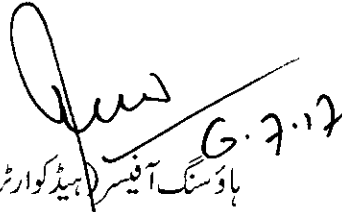 6.7.17
ہاؤسنگ آفیسر (ہیڈکوارٹر